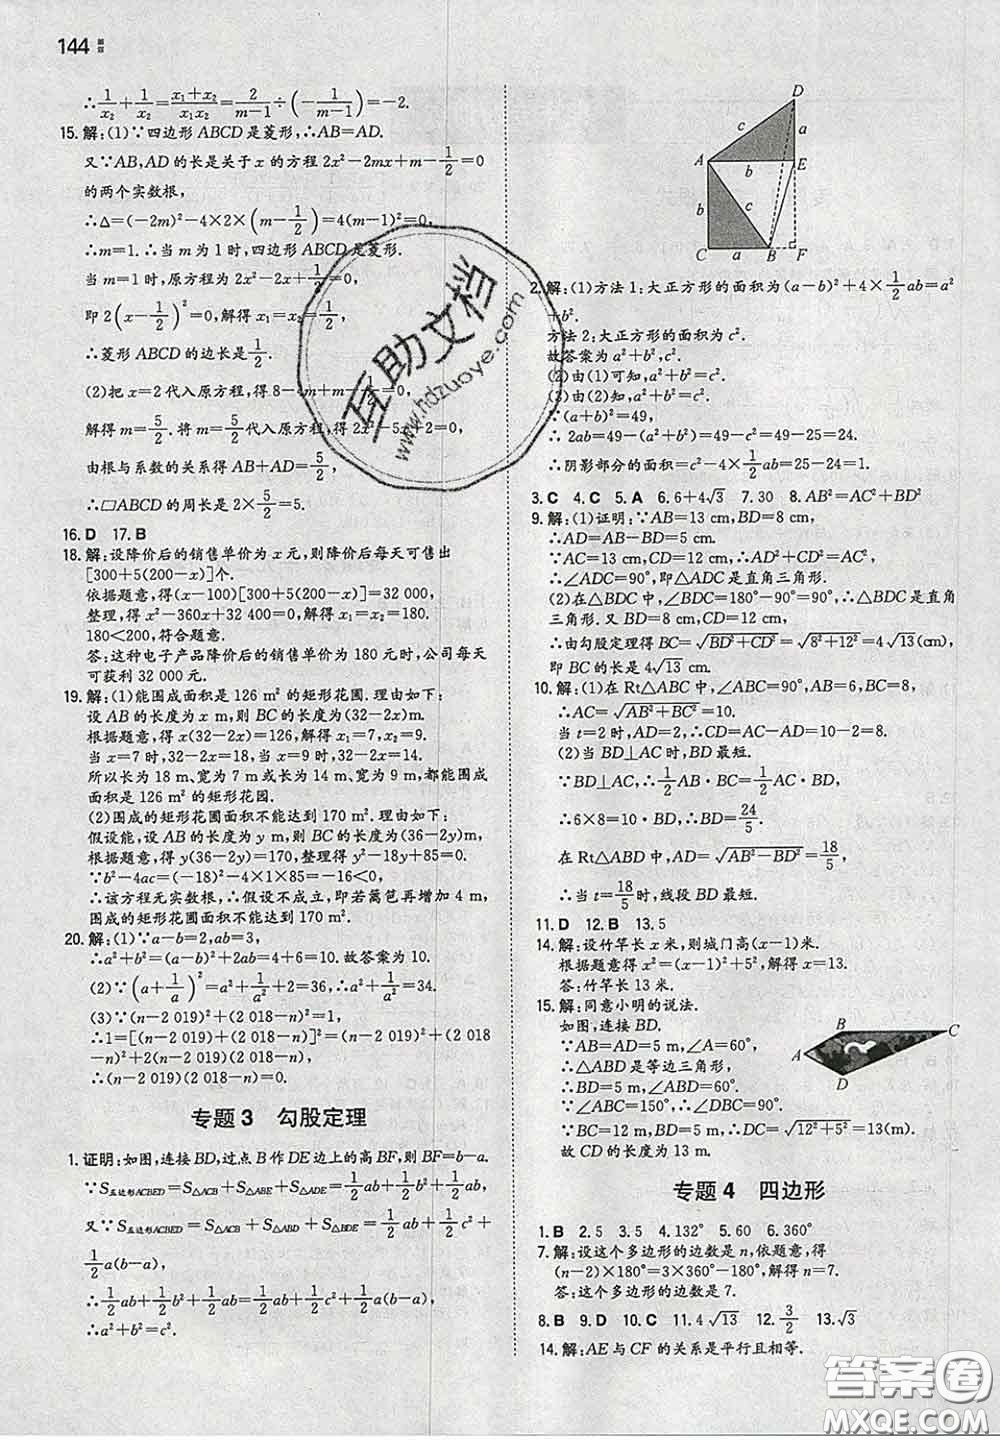 144
∴1/x₂+1/x₁=(x₁+x₂)/(x₁x₂)=2/(m-1)÷(-1/(m-1))=-2.
15.解:(1)∵四边形ABCD是菱形,∴AB=AD.
又∵AB,AD的长是关于x的方程2x²-2mx+m-1/2=0
的两个实数根,
∴Δ=(-2m)²-4×2×(m-1/2)=4(m-1)²=0,
∴m=1.∴当m为1时,四边形ABCD是菱形.
当m=1时,原方程为2x²-2x+1/2=0,
即2(x-1/2)²=0,解得x₁=x₂=1/2,
∴菱形ABCD的边长是1/2.
(2)把x=2代入原方程,得8-4m+m-1/2=0,
解得m=5/2.将m=5/2代入原方程,得2x²-5x+2=0,
由根与系数的关系得AB+AD=5/2,
∴□ABCD的周长是2×5/2=5.
16.D 17.B
18.解:设降价后的销售单价为x元,则降价后每天可售出
[300+5(200-x)]个.
依据题意,得(x-100)[300+5(200-x)]=32 000,
整理,得x²-360x+32 400=0,解得x₁=x₂=180.
180<200,符合题意.
答:这种电子产品降价后的销售单价为180元时,公司每天
可获利32 000元.
19.解:(1)能围成面积是126 m²的矩形花圃.理由如下:
设AB的长度为x m,则BC的长度为(32-2x)m.
根据题意,得x(32-2x)=126,解得x₁=7,x₂=9.
当x=7时,32-2x=18,当x=9时,32-2x=14.
所以长为18 m、宽为7 m或长为14 m、宽为9 m,都能围成
面积是126 m²的矩形花园.
(2)围成的矩形花圃面积不能达到170 m².理由如下:
假设能,设AB的长度为y m,则BC的长度为(36-2y)m,
根据题意,得y(36-2y)=170,整理得y²-18y+85=0.
∵b²-4ac=(-18)²-4×1×85=-16<0,
∴该方程无实数根,∴假设不成立,即若篱笆再增加4 m,
围成的矩形花圃面积不能达到170 m².
20.解:(1)∵a-b=2,ab=3,
∴a²+b²=(a-b)²+2ab=4+6=10.故答案为10.
(2)∵(a+1/a)²=a²+1/a²+2=36,∴a²+1/a²=34.
(3)∵(n-2 019)²+(2 018-n)²=1,
∴1=[(n-2 019)+(2 018-n)]²=(n-2 019)²+(2 018
-n)²+2(n-2 019)(2 018-n),
∴(n-2 019)(2 018-n)=0.
专题3 勾股定理
1.证明:如图,连接BD,过点B作DE边上的高BF,则BF=b-a.
∵S五边形ACBED=S△ACB+S△ABE+S△ADE=1/2ab+1/2b²+1/2ab,
又∵S五边形ACBED=S△ACB+S△ABD+S△BDE=1/2ab+1/2c²+
1/2a(b-a),
∴1/2ab+1/2b²+1/2ab=1/2ab+1/2c²+1/2a(b-a),
∴a²+b²=c².
D
c
a
A
b
E
b
c
C
a
B
F
2.解:(1)方法1:大正方形的面积为(a-b)²+4×1/2ab=a²
+b².
方法2:大正方形的面积为c².
故答案为a²+b²,c².
(2)由(1)可知,a²+b²=c².
(3)由(2)知,a²+b²=c²=25.
∵(a+b)²=49,
∴2ab=49-(a²+b²)=49-25=24.
∴阴影部分的面积=c²-4×1/2ab=25-24=1.
3.C 4.C 5.A 6.6+4√3 7.30 8.AB²=AC²+BD²
9.解:(1)证明:∵AB=13 cm,BD=8 cm,
∴AD=AB-BD=5 cm.
∵AC=13 cm,CD=12 cm,∴AD²+CD²=AC²,
∴∠ADC=90°,即△ADC是直角三角形.
(2)在△BDC中,∠BDC=180°-90°=90°,∴△BDC是直角
三角形.又BD=8 cm,CD=12 cm,
∴由勾股定理得BC=√(BD²+CD²)=√(8²+12²)=4√13(cm),
即BC的长是4√13 cm.
10.解:(1)在Rt△ABC中,∠ABC=90°,AB=6,BC=8,
∴AC=√(AB²+BC²)=10.
当t=2时,AD=2,∴CD=AC-AD=10-2=8.
(2)当BD⊥AC时,BD最短.
∵BD⊥AC,∴1/2AB·BC=1/2AC·BD,
∴6×8=10·BD,∴BD=24/5.
在Rt△ABD中,AD=√(AB²-BD²)=18/5,
∴当t=18/5时,线段BD最短.
11.D 12.B 13.5
14.解:设竹竿长x米,则城门高(x-1)米.
根据题意得x²=(x-1)²+5²,解得x=13.
答:竹竿长13米.
15.解:同意小明的说法.
如图,连接BD.
∵AB=AD=5 m,∠A=60°,
∴△ABD是等边三角形,
∴BD=5 m,∠ABD=60°.
∵∠ABC=150°,∴∠DBC=90°.
∵BC=12 m,BD=5 m,∴DC=√(12²+5²)=13(m).
故CD的长度为13 m.
B
C
A
D
专题4 四边形
1.B 2.5 3.5 4.132° 5.60 6.360°
7.解:设这个多边形的边数是n,依题意,得
(n-2)×180°=3×360°-180°,解得n=7.
答:这个多边形的边数是7.
8.B 9.D 10.C 11.4√13 12.3/2 13.√3
14.解:AE与CF的关系是平行且相等.
互助文档
www.hdzuoye.com
答案圈
MXQE.COM